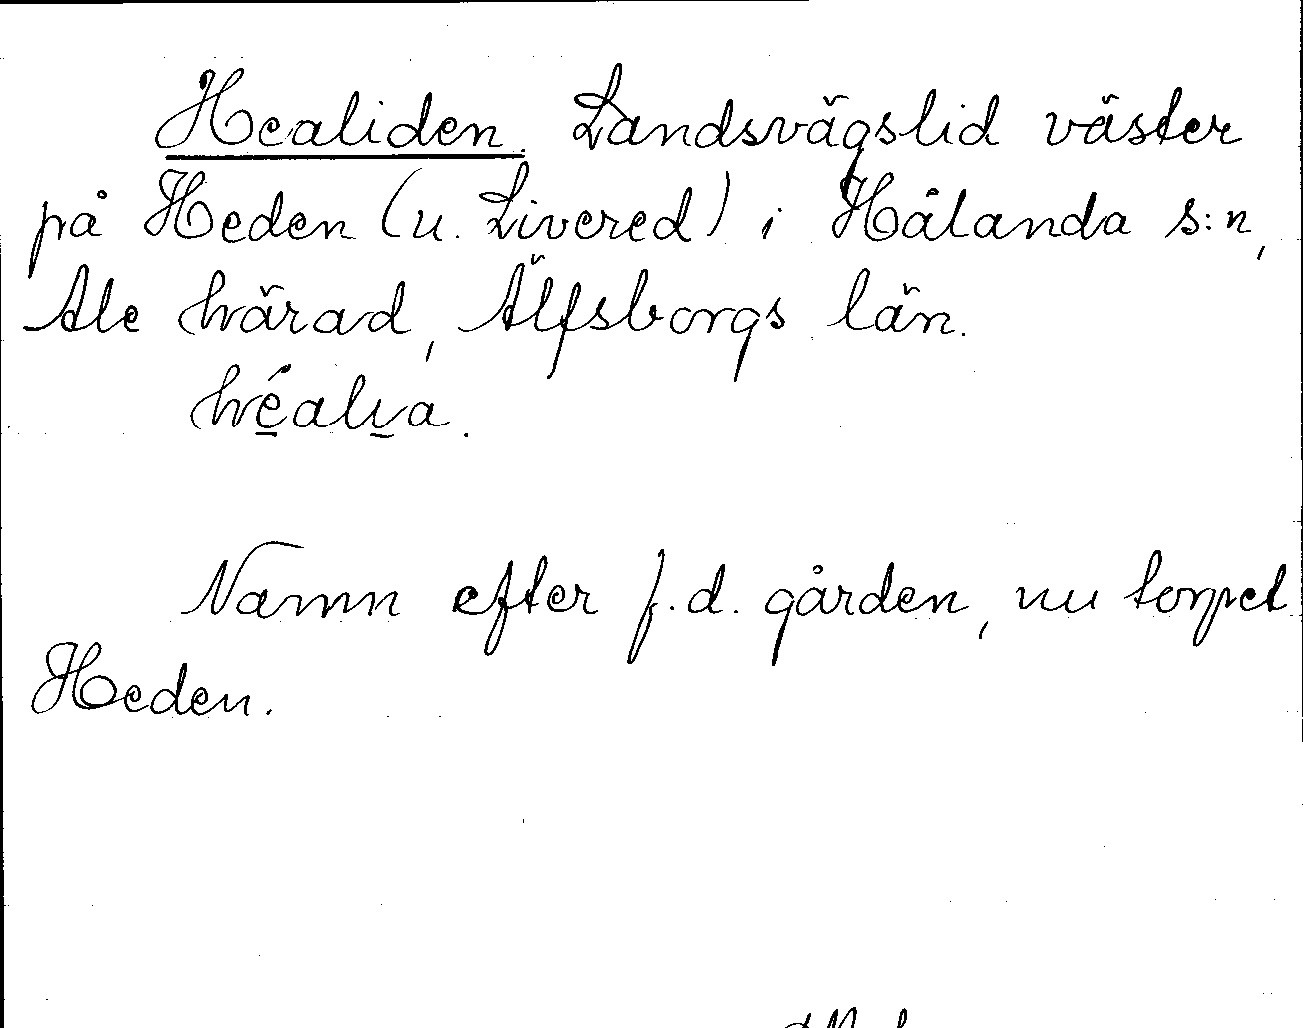 Healiden. Landsvägslid väster
på Heden (u. Livered) i Hålanda s:n,
Ale härad, Älfsborgs län.
Namn efter f.d. gården, nu torpet
Heden.